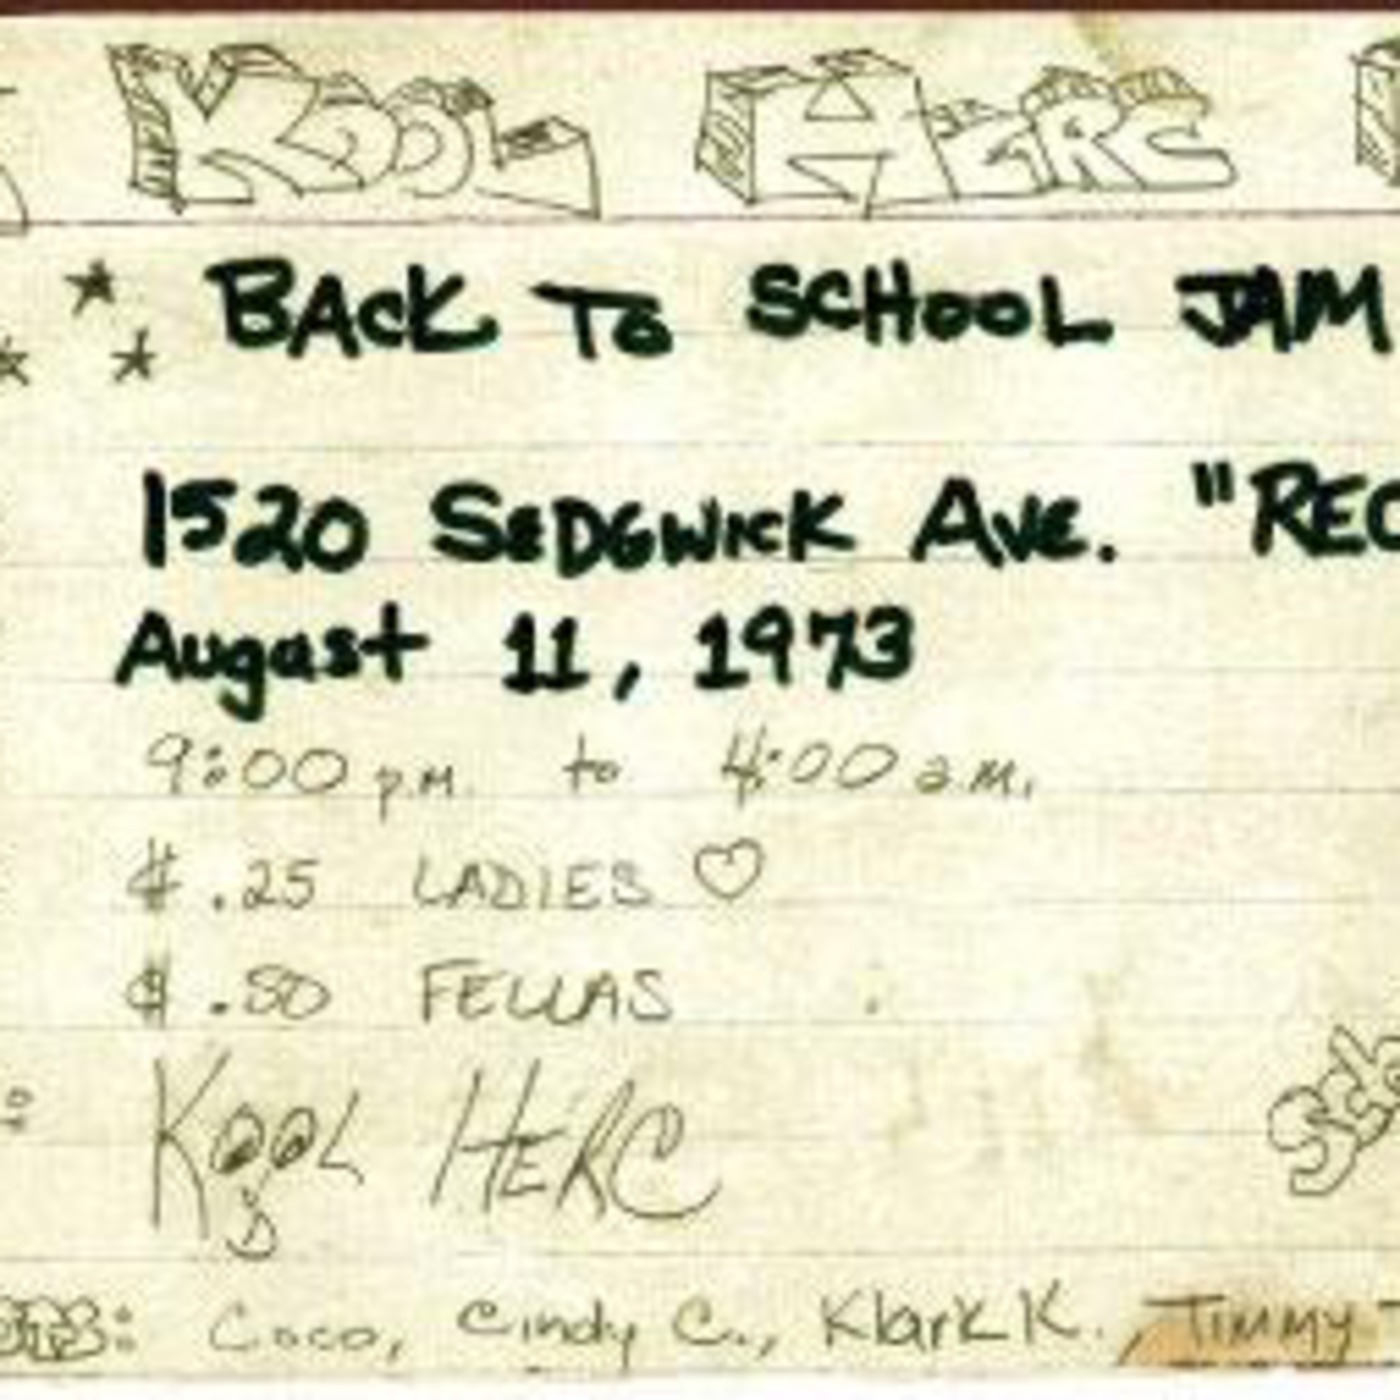 KOOL HERC
BACK To SCHOOL JAM
1520 SEDGWICK AVE. "REC
August 11, 1973
9:00 p.m. to 4:00 a.m.
$ .25 LADIES ♡
$ .50 FELLAS
KOOL HERC
Coco, Cindy C., Klark K., Timmy T